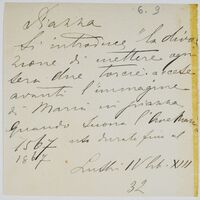 6.3
Piazza
Si introduce la divo-
zione di mettere ogni
sera due torcie accese
avanti l'immagine
di Maria in piazza
quando suona l'Ave Maria
1567 durato fino al
1867.
Lib. XIII
32